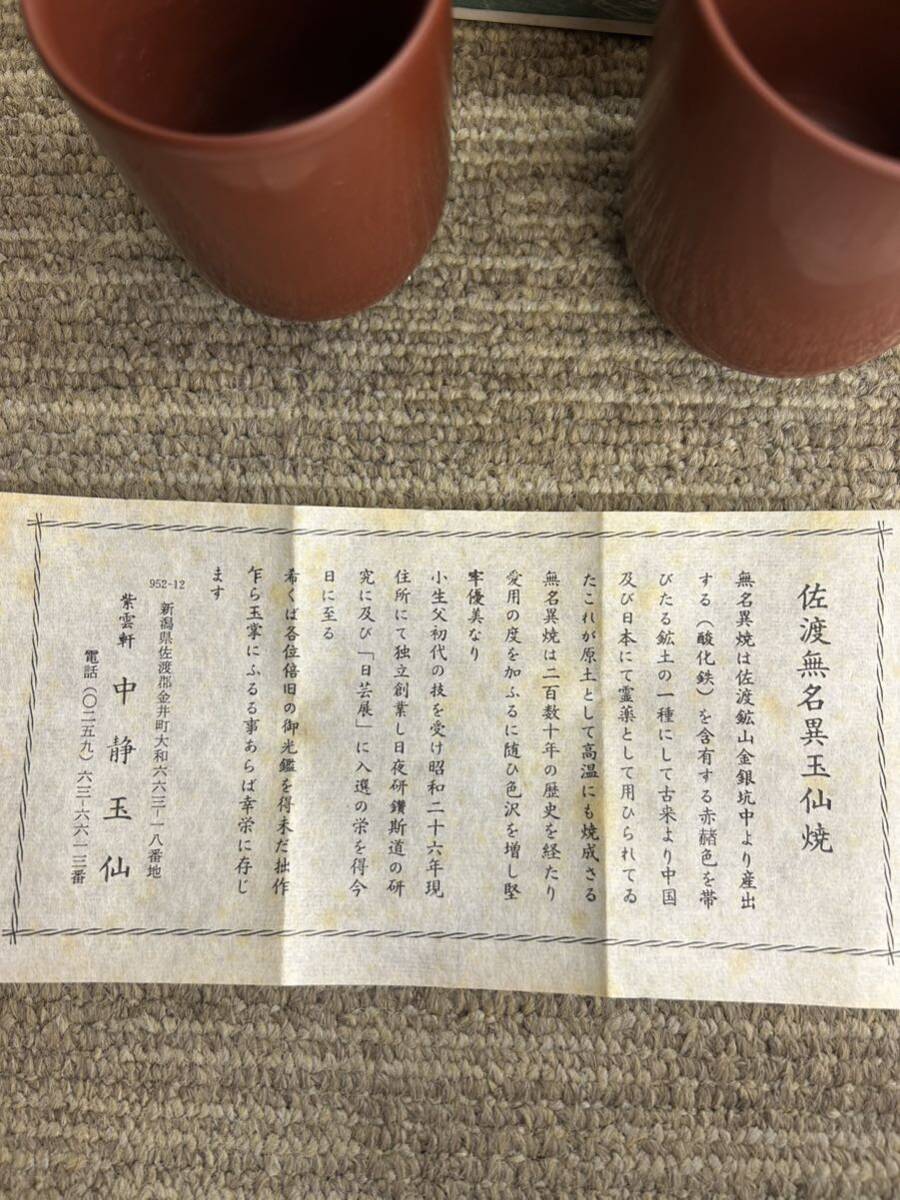 佐渡無名異玉仙焼
無名異焼は佐渡鉱山金銀坑中より産出
する（酸化鉄）を含有する赤赭色を帯
びたる鉱土の一種にして古来より中国
及び日本にて霊薬として用ひられてゐ
たこれが原土として高温にも焼成さる
無名異焼は二百数十年の歴史を経たり
愛用の度を加ふるに随ひ色沢を増し堅
牢優美なり
小生父初代の技を受け昭和二十六年現
住所にて独立創業し日夜研鑽斯道の研
究に及び「日芸展」に入選の栄を得今
日に至る
希くば各位倍旧の御光鑑を得未だ拙作
乍ら玉掌にふるる事あらば幸栄に存じ
ます
952-12 新潟県佐渡郡金井町大和六六三―一八番地
紫雲軒 中静玉仙
電話（〇二五九）六三―六六一三番